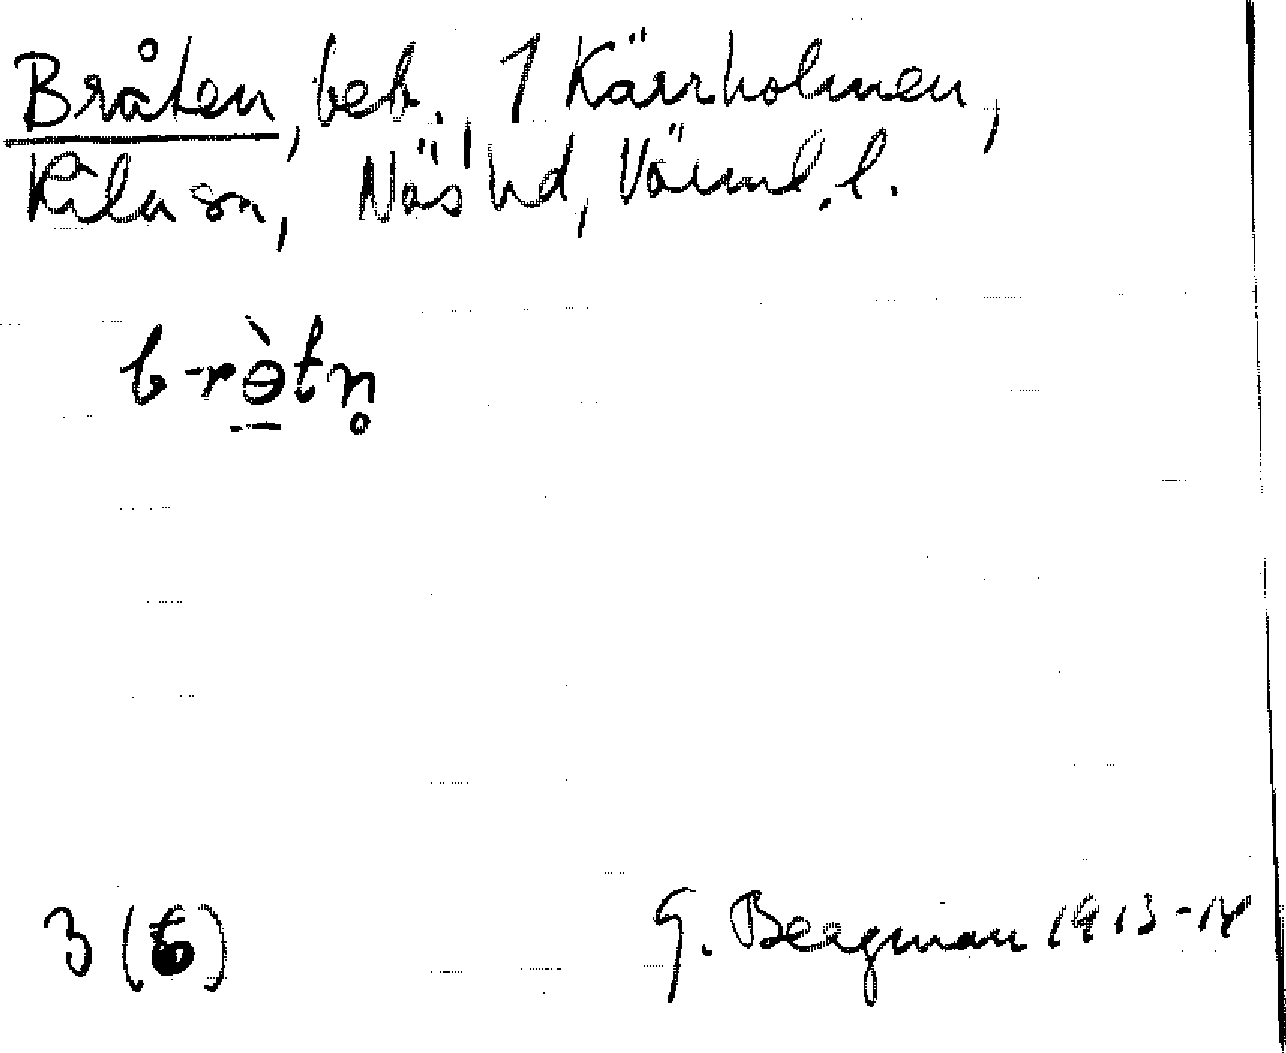 Bråten, beb. 1 Kärrholmen,
Kila sn, Näs hd, Värml. l.
b-rə̀tn̥
3 (5)
G. Bergman 1913-14